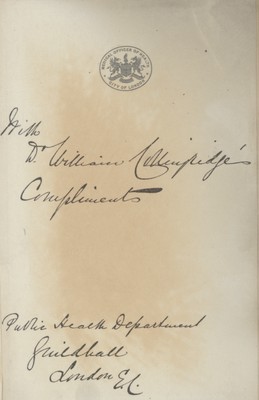 MEDICAL OFFICER OF HEALTH
CITY OF LONDON
With
Dr William Collingridge's
Compliments
Public Health Department
Guildhall
London E.C.